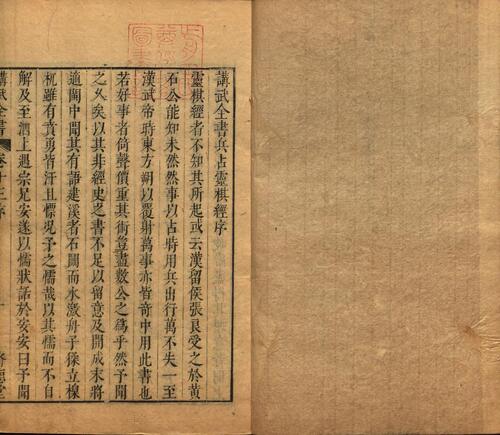 講武全書兵占靈棋經序
靈棋經者不知其所起或云漢留侯張良受之於黃
石公能知未然然事以占時用兵出行萬不失一至
漢武帝時東方朔以覆射萬事亦皆奇中用此書也
若好事者倚聲價重其術豈盡數公之為乎然予聞
之久矣以其非經史之書不足以留意及開成末將
適閩中聞其有語建溪者石鬭而水激舟子傺立槔
杌雖有賁勇皆汗且慄況予之懦哉以其懦而不自
解及至泗上遇宗兄安遂以懦狀話於安安曰予聞
講武全書 卷十三序